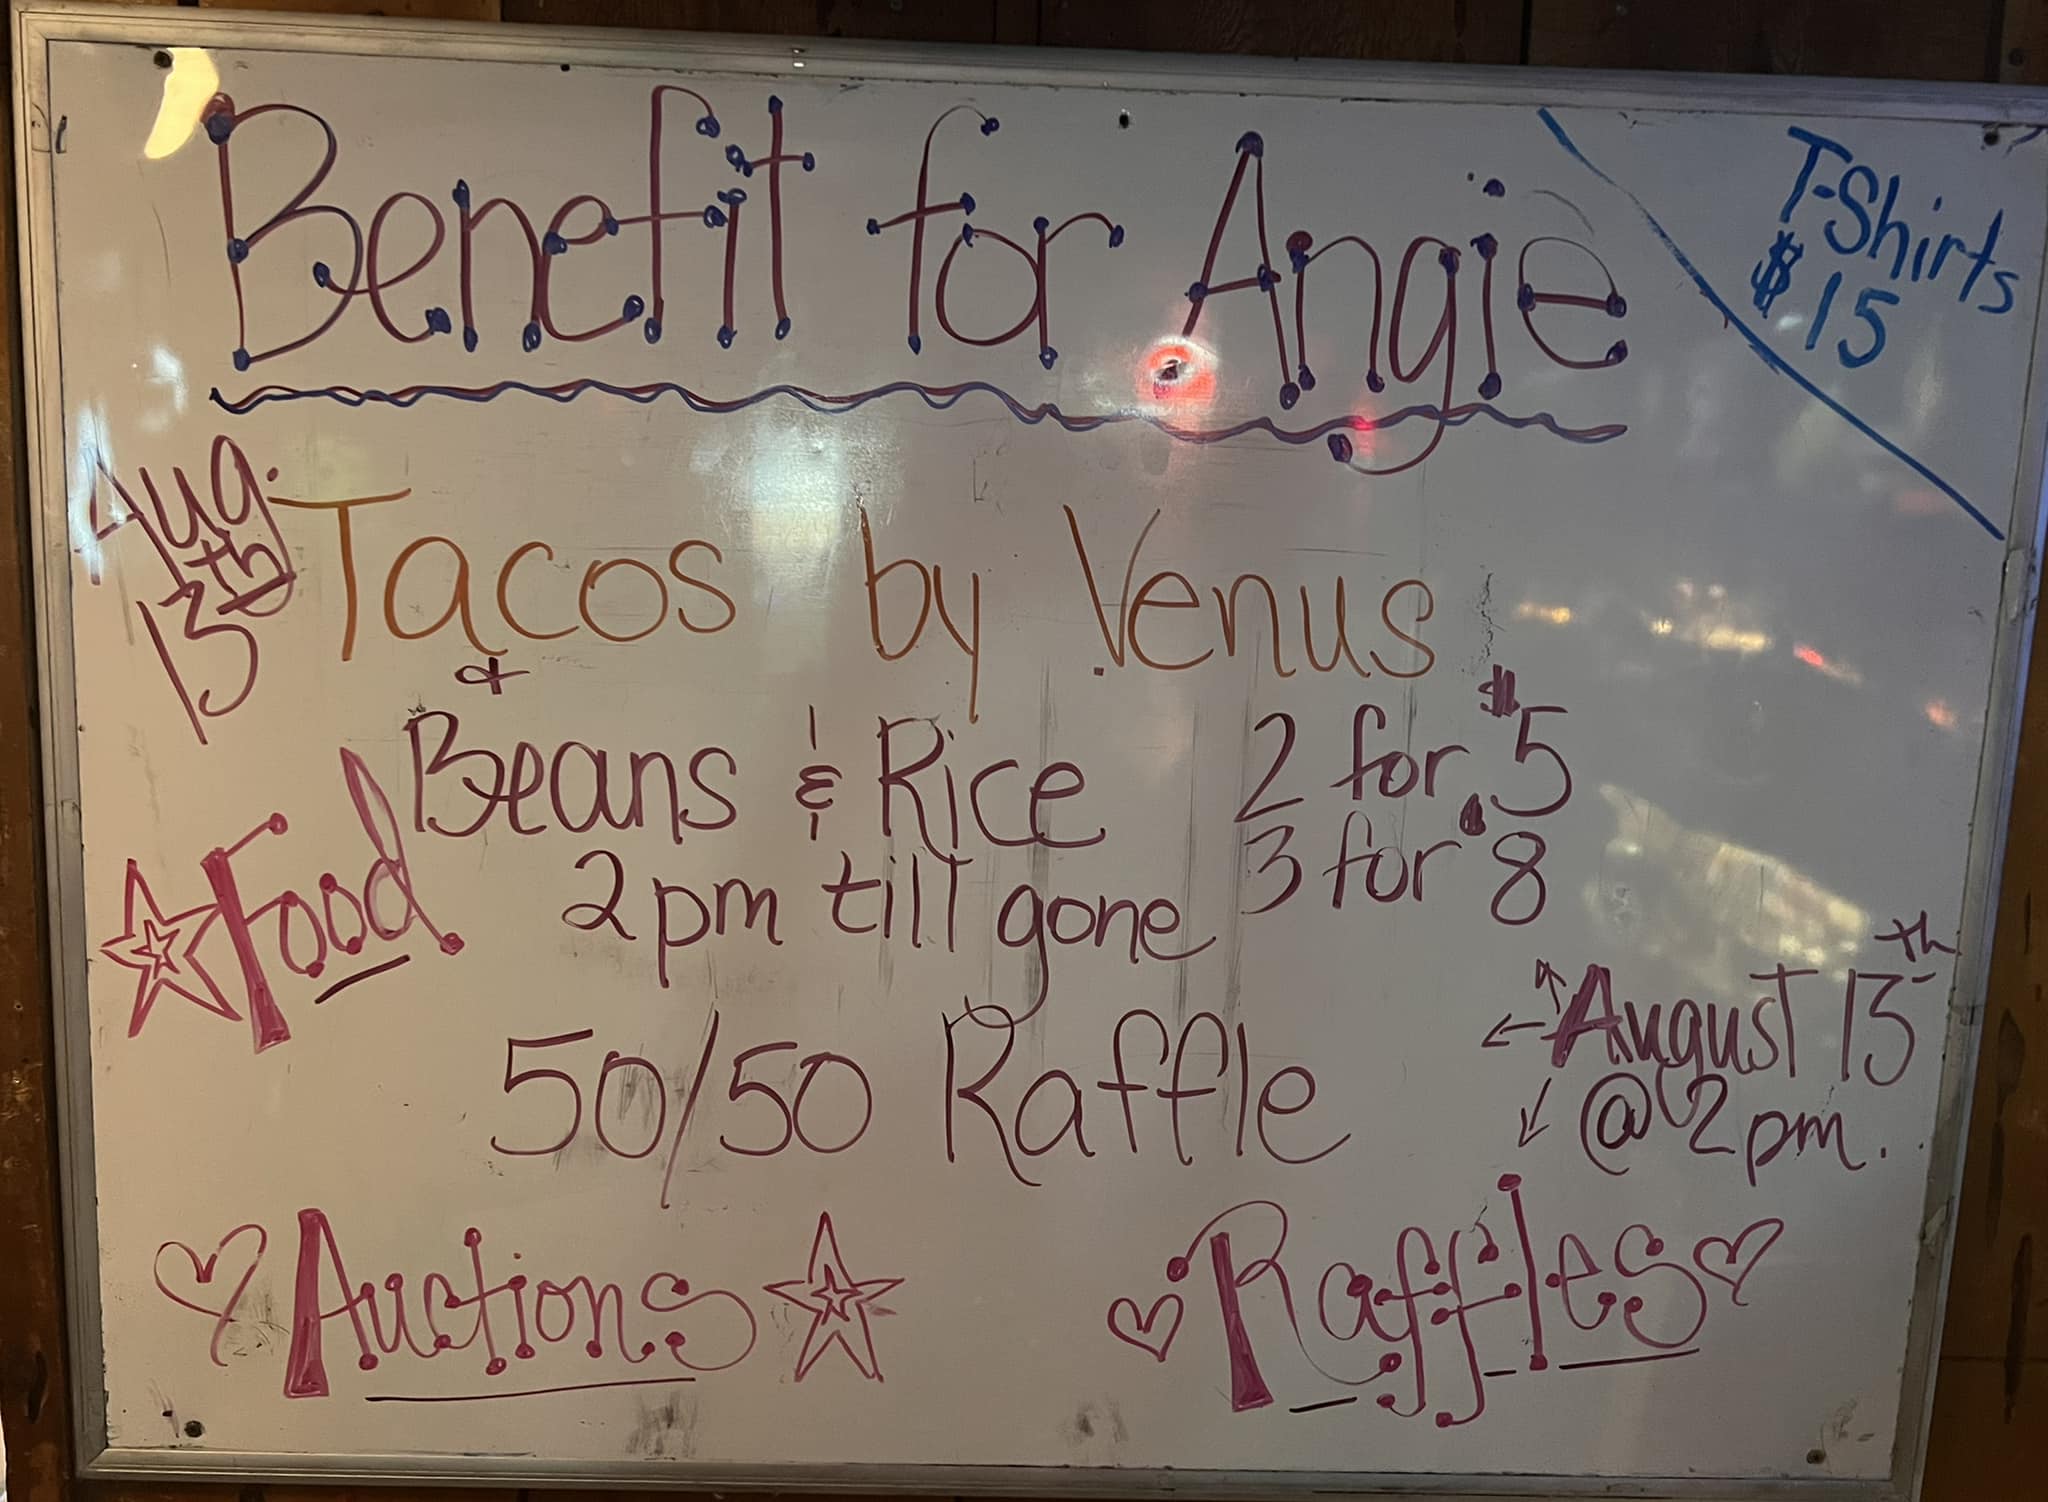 Benefit for Angie
T-Shirts
$15
Aug.
13th
Tacos by Venus
&
Beans & Rice
2 for $5
3 for 8
2pm till gone
Food
50/50 Raffle
August 13th
@ 2pm.
Auctions
Raffles